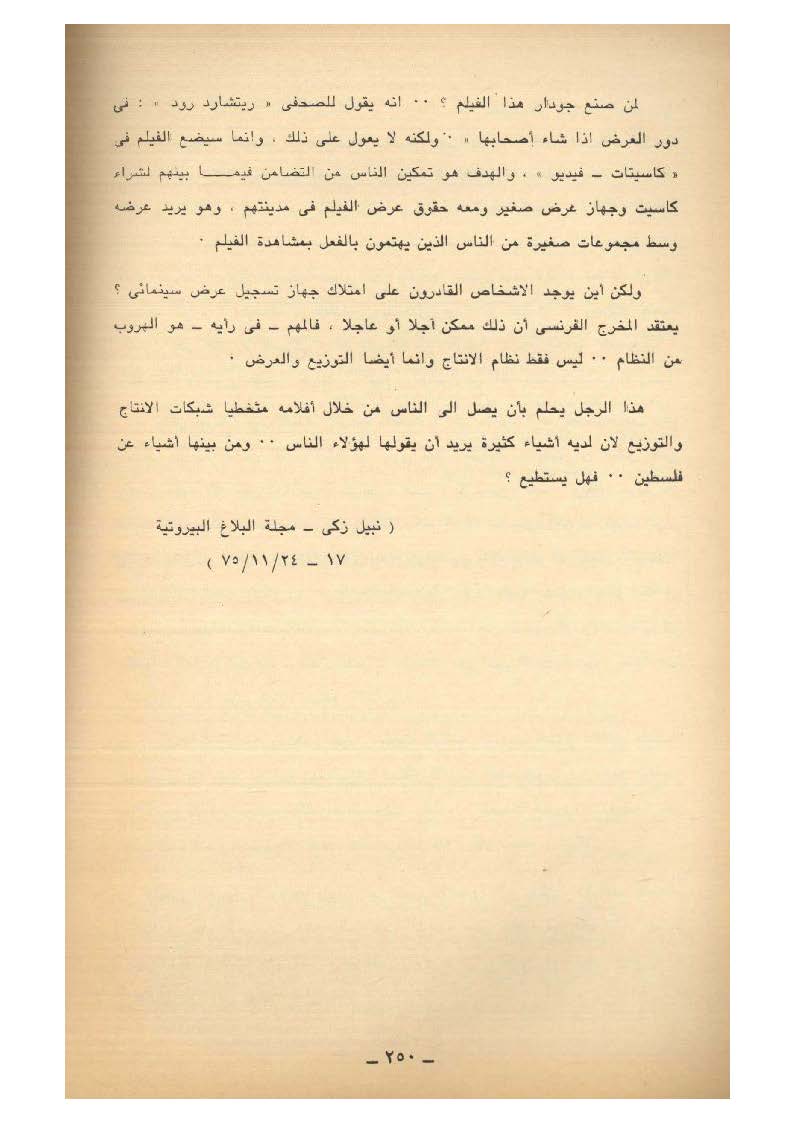 لمن صنع جودار هذا الفيلم ؟ ٠٠ انه يقول للصحفى « ريتشارد رود » : فى
دور العرض اذا شاء أصحابها » ٠ ولكنه لا يعول على ذلك ، وانما سيضع الفيلم فى
« كاسيتات ــ فيديو » ، والهدف هو تمكين الناس من التضامن فيمــــا بينهم لشراء
كاسيت وجهاز عرض صغير ومعه حقوق عرض الفيلم فى مدينتهم ، وهو يريد عرضه
وسط مجموعات صغيرة من الناس الذين يهتمون بالفعل بمشاهدة الفيلم ٠
ولكن أين يوجد الاشخاص القادرون على امتلاك جهاز تسجيل عرض سينمائى ؟
يعتقد المخرج الفرنسى أن ذلك ممكن آجلا أو عاجلا ، فالمهم ــ فى رأيه ــ هو الهروب
من النظام ٠٠ ليس فقط نظام الانتاج وانما أيضا التوزيع والعرض ٠
هذا الرجل يحلم بأن يصل الى الناس من خلال أفلامه متخطيا شبكات الانتاج
والتوزيع لان لديه أشياء كثيرة يريد أن يقولها لهؤلاء الناس ٠٠ ومن بينها أشياء عن
فلسطين ٠٠ فهل يستطيع ؟
( نبيل زكى ــ مجلة البلاغ البيروتية
١٧ ــ ٧٥/١١/٢٤ )
ــ ٢٥٠ ــ